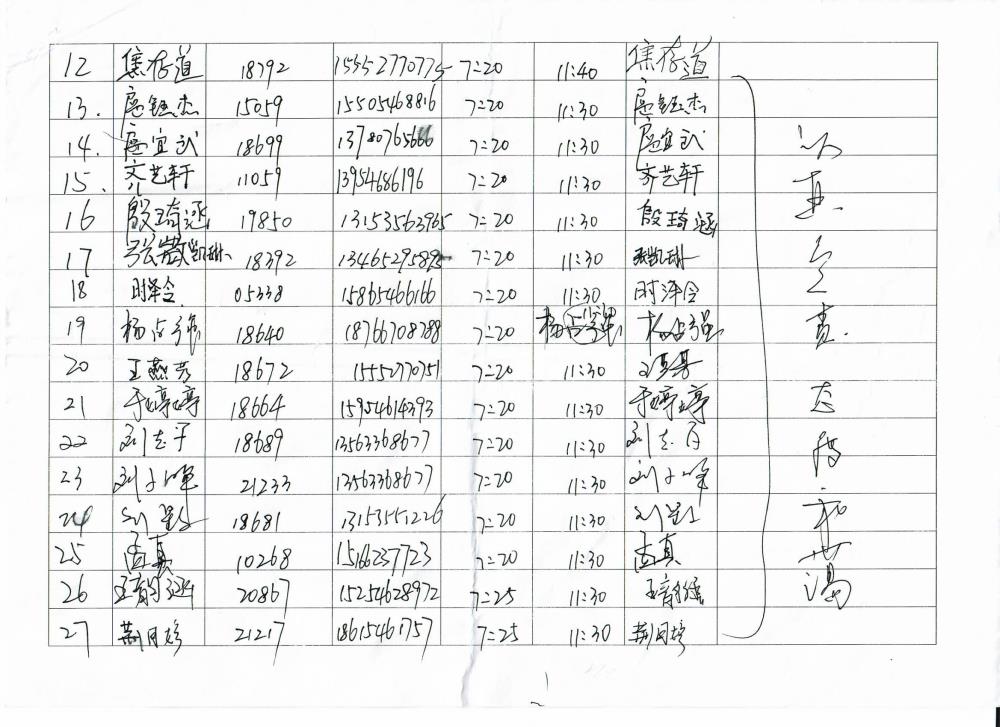 12 焦存道 18792 15552770775 7:20 11:40 焦存道
13. 扈钰杰 15059 15505468816 7:20 11:30 扈钰杰
14. 扈宜武 18699 13780765666 7:20 11:30 扈宜武
15. 齐艺轩 11059 13954686196 7:20 11:30 齐艺轩
16 殷琦涵 19850 13153563965 7:20 11:30 殷琦涵
17 张凯琳 18392 13465295895 7:20 11:30 张凯琳
18 时泽令 05338 15865466166 7:20 11:30 时泽令
19 杨占强 18640 18766708788 7:20 杨占强
20 王燕芳 18672 15552770751 7:20 11:30
21 于婷婷 18664 15954614393 7:20 11:30 于婷婷
22 刘志子 18689 13563368677 7:20 11:30
23 刘子晖 21233 13563368677 7:20 11:30 刘子晖
24 18681 13153551226 7:20 11:30
25 孟真 10268 15166237723 7:20 11:30 孟真
26 20867 15254628972 7:25 11:30
27 荆月婷 21217 18615461757 7:25 11:30 荆月婷
认真负责